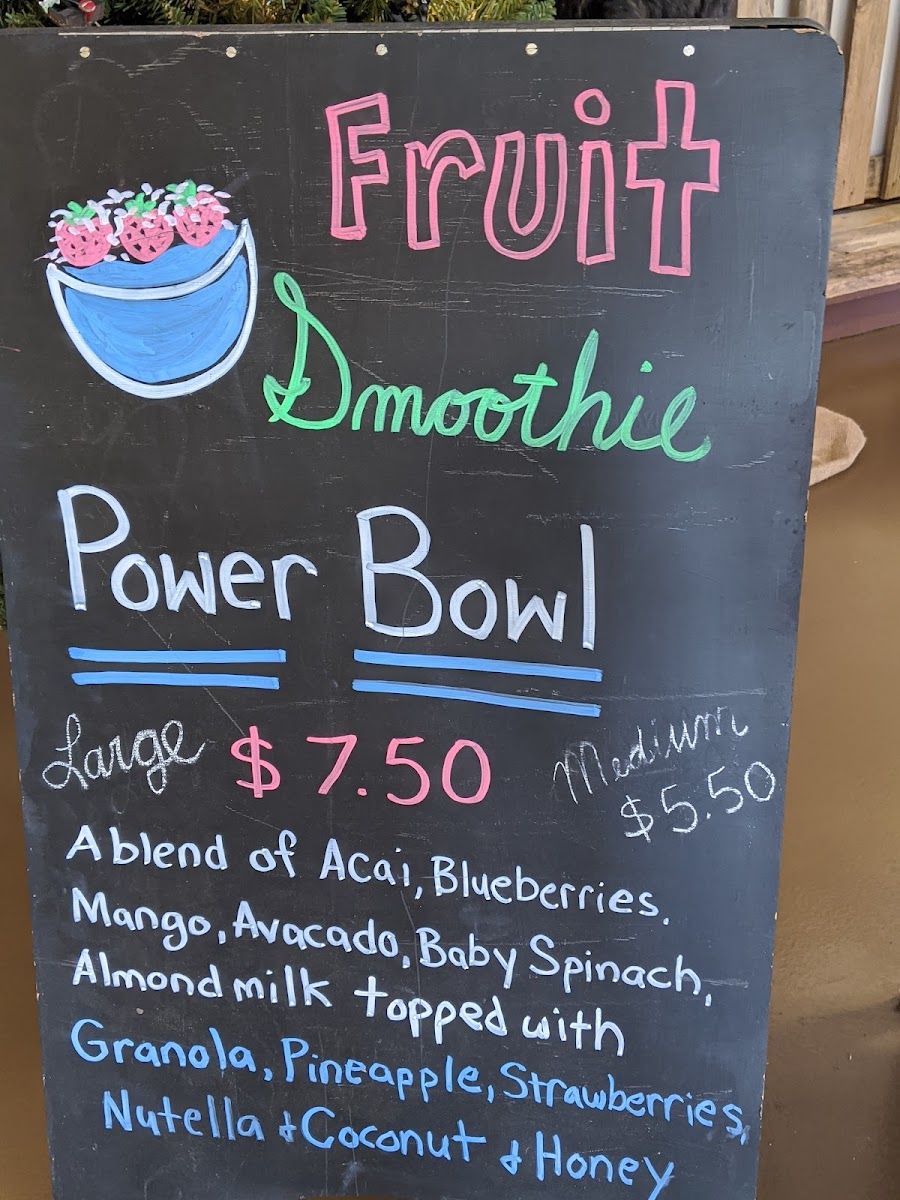 Fruit
Smoothie
Power Bowl
Large $7.50 Medium
$5.50
A blend of Acai, Blueberries.
Mango, Avacado, Baby Spinach,
Almond milk topped with
Granola, Pineapple, Strawberries,
Nutella & Coconut & Honey